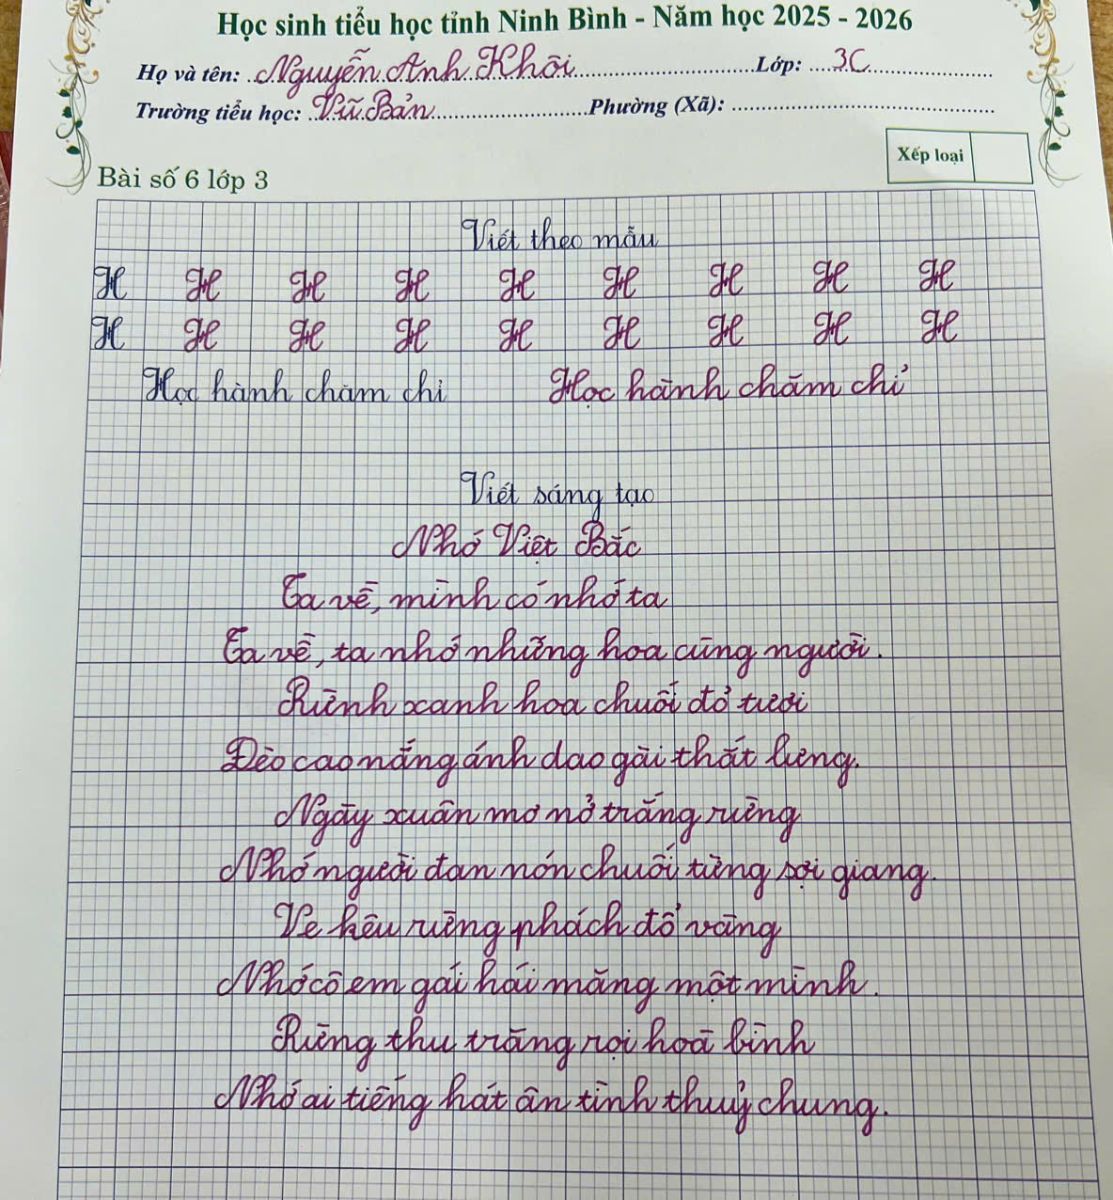 Học sinh tiểu học tỉnh Ninh Bình - Năm học 2025 - 2026
Họ và tên: Nguyễn Anh Khôi Lớp: 3C
Trường tiểu học: Vũ Bản Phường (Xã):
Xếp loại
Bài số 6 lớp 3
Viết theo mẫu
H H H H H H H H H
H H H H H H H H H
Học hành chăm chỉ Học hành chăm chỉ
Viết sáng tạo
Nhớ Việt Bắc
Ta về, mình có nhớ ta
Ta về, ta nhớ những hoa cùng người.
Rừng xanh hoa chuối đỏ tươi
Đèo cao nắng ánh dao gài thắt lưng.
Ngày xuân mơ nở trắng rừng
Nhớ người đan nón chuốt từng sợi giang.
Ve kêu rừng phách đổ vàng
Nhớ cô em gái hái măng một mình.
Rừng thu trăng rọi hoà bình
Nhớ ai tiếng hát ân tình thuỷ chung.